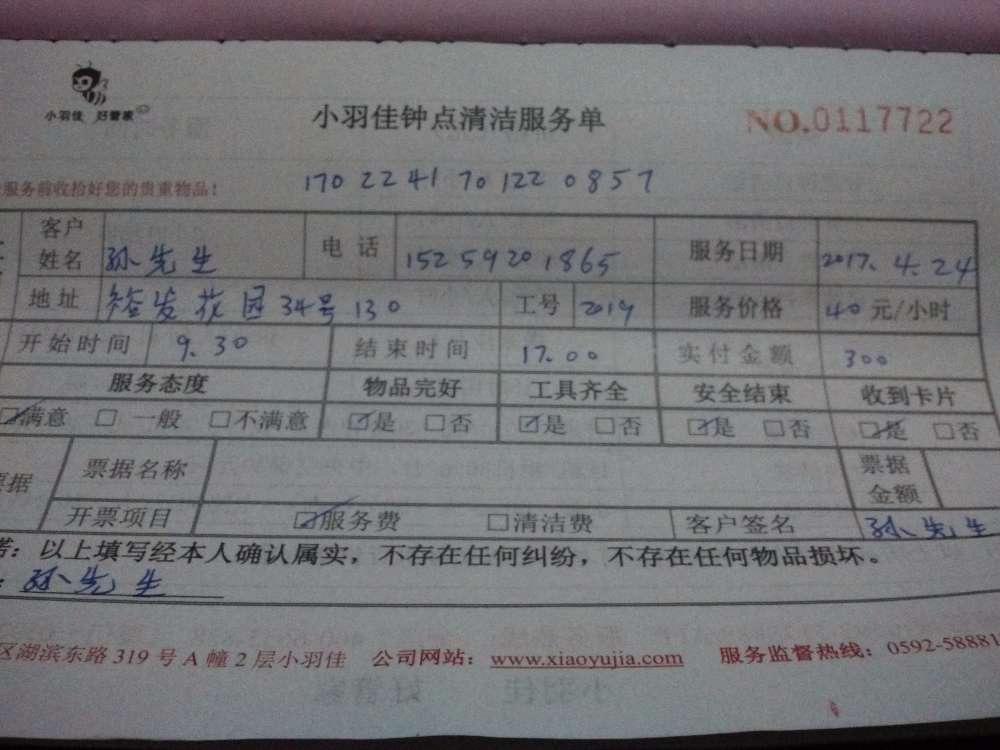 小羽佳 好管家
小羽佳钟点清洁服务单
NO.0117722
服务前收拾好您的贵重物品!
170 2241 70122 0857
客户姓名 孙先生 电话 15259201865 服务日期 2017.4.24
地址 裕发花园34号130 工号 2019 服务价格 40元/小时
开始时间 9.30 结束时间 17.00 实付金额 300
服务态度 物品完好 工具齐全 安全结束 收到卡片
☑满意 □一般 □不满意 ☑是 □否 ☑是 □否 ☑是 □否 ☑是 □否
票据名称 票据金额
开票项目 ☑服务费 □清洁费 客户签名 孙先生
:以上填写经本人确认属实,不存在任何纠纷,不存在任何物品损坏。
: 孙先生
区湖滨东路319号A幢2层小羽佳 公司网站:www.xiaoyujia.com 服务监督热线:0592-58881